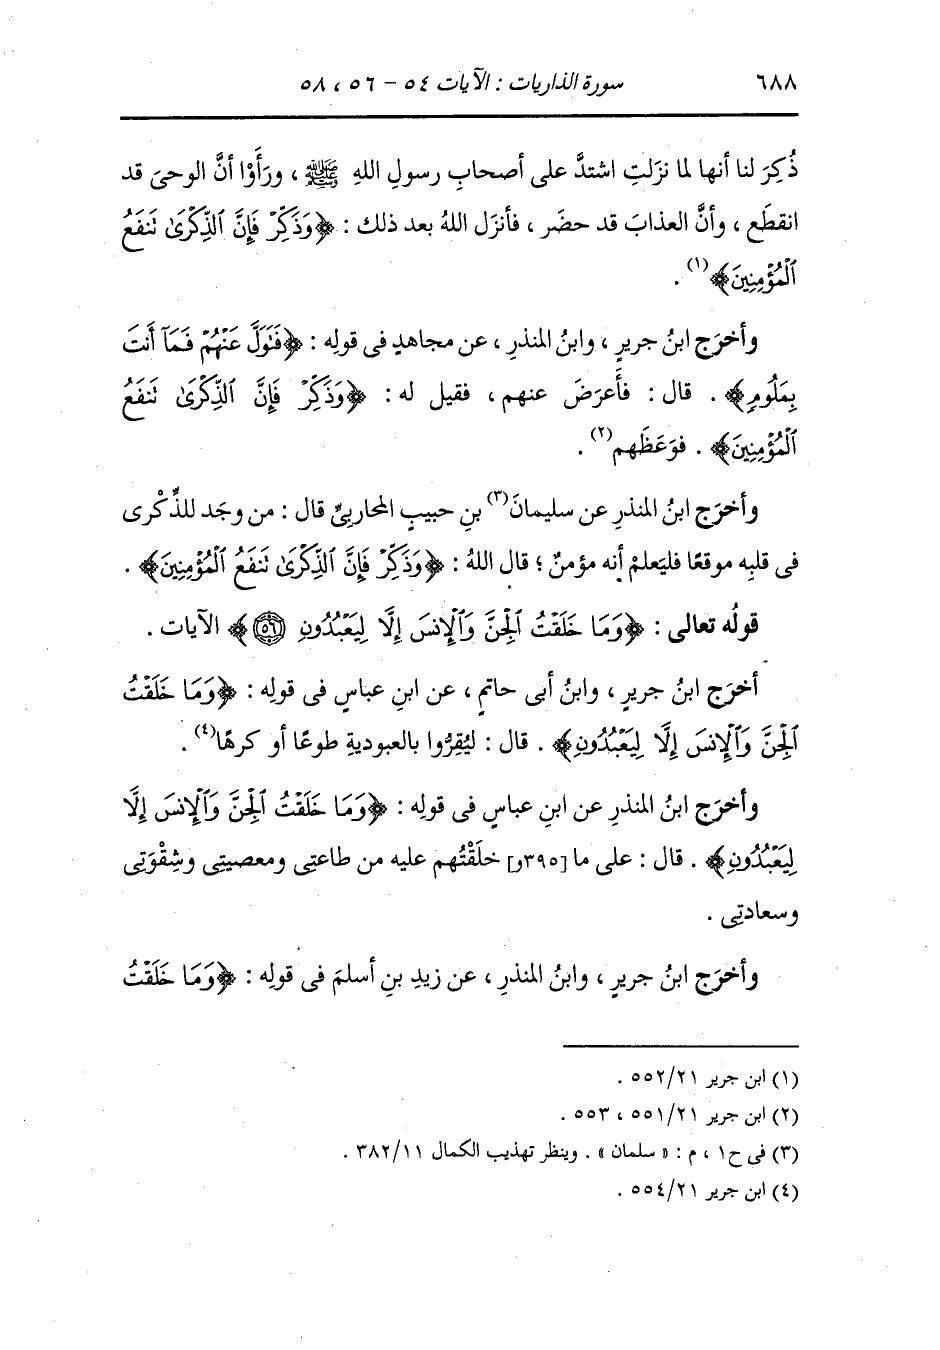 ٦٨٨ سورة الذاريات : الآيات ٥٤ - ٥٦ ، ٥٨
ذُكِرَ لنا أنها لما نزَلتِ اشتدَّ على أصحابِ رسولِ اللهِ ﷺ ، ورَأَوْا أنَّ الوحىَ قد
انقطَع ، وأنَّ العذابَ قد حضَر ، فأنزَل اللهُ بعد ذلك : ﴿وَذَكِّرْ فَإِنَّ ٱلذِّكْرَىٰ تَنفَعُ
ٱلْمُؤْمِنِينَ﴾(١) .
وأخرَج ابنُ جريرٍ ، وابنُ المنذرِ ، عن مجاهدٍ فى قولِه : ﴿فَتَوَلَّ عَنْهُمْ فَمَآ أَنتَ
بِمَلُومٍ﴾ . قال : فأَعرَضَ عنهم ، فقيل له : ﴿وَذَكِّرْ فَإِنَّ ٱلذِّكْرَىٰ تَنفَعُ
ٱلْمُؤْمِنِينَ﴾ . فوَعَظَهم(٢) .
وأخرَج ابنُ المنذرِ عن سليمانَ(٣) بنِ حبيبٍ المحاربىِّ قال : من وجَد للذِّكْرى
فى قلبِه موقعًا فليَعلمْ أنه مؤمنٌ ؛ قال اللهُ : ﴿وَذَكِّرْ فَإِنَّ ٱلذِّكْرَىٰ تَنفَعُ ٱلْمُؤْمِنِينَ﴾ .
قولُه تعالى : ﴿وَمَا خَلَقْتُ ٱلْجِنَّ وَٱلْإِنسَ إِلَّا لِيَعْبُدُونِ ۝٥٦﴾ الآيات .
أخرَج ابنُ جريرٍ ، وابنُ أبى حاتمٍ ، عن ابنِ عباسٍ فى قولِه : ﴿وَمَا خَلَقْتُ
ٱلْجِنَّ وَٱلْإِنسَ إِلَّا لِيَعْبُدُونِ﴾ . قال : ليُقِرُّوا بالعبوديةِ طوعًا أو كرهًا(٤) .
وأخرَج ابنُ المنذرِ عن ابنِ عباسٍ فى قولِه : ﴿وَمَا خَلَقْتُ ٱلْجِنَّ وَٱلْإِنسَ إِلَّا
لِيَعْبُدُونِ﴾ . قال : على ما [٣٩٥و] خلَقْتُهم عليه من طاعتِى ومعصيتِى وشِقْوَتِى
وسعادتِى .
وأخرَج ابنُ جريرٍ ، وابنُ المنذرِ ، عن زيدِ بنِ أسلمَ فى قولِه : ﴿وَمَا خَلَقْتُ
(١) ابن جرير ٥٥٢/٢١ .
(٢) ابن جرير ٥٥١/٢١ ، ٥٥٣ .
(٣) فى ح١ ، م : « سلمان » . وينظر تهذيب الكمال ٣٨٢/١١ .
(٤) ابن جرير ٥٥٤/٢١ .